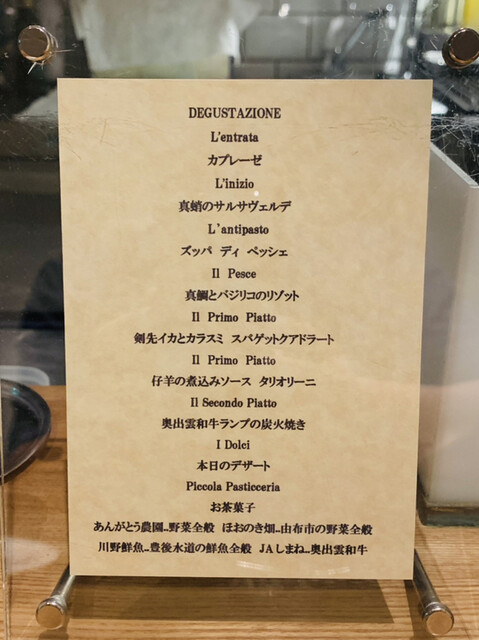 DEGUSTAZIONE
L'entrata
カプレーゼ
L'inizio
真蛸のサルサヴェルデ
L'antipasto
ズッパ ディ ペッシェ
Il Pesce
真鯛とバジリコのリゾット
Il Primo Piatto
剣先イカとカラスミ スパゲットクアドラート
Il Primo Piatto
仔羊の煮込みソース タリオリーニ
Il Secondo Piatto
奥出雲和牛ランプの炭火焼き
I Dolci
本日のデザート
Piccola Pasticceria
お茶菓子
あんがとう農園…野菜全般 ほおのき畑…由布市の野菜全般
川野鮮魚…豊後水道の鮮魚全般 JAしまね…奥出雲和牛